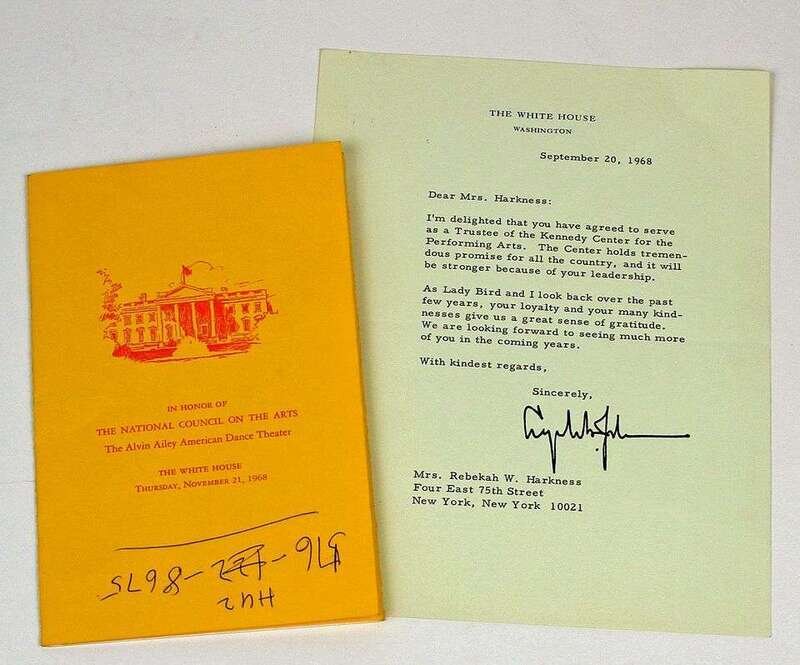 IN HONOR OF
THE NATIONAL COUNCIL ON THE ARTS
The Alvin Ailey American Dance Theater
THE WHITE HOUSE
THURSDAY, NOVEMBER 21, 1968
516- -8675
THE WHITE HOUSE
WASHINGTON
September 20, 1968
Dear Mrs. Harkness:
I'm delighted that you have agreed to serve
as a Trustee of the Kennedy Center for the
Performing Arts. The Center holds tremen-
dous promise for all the country, and it will
be stronger because of your leadership.
As Lady Bird and I look back over the past
few years, your loyalty and your many kind-
nesses give us a great sense of gratitude.
We are looking forward to seeing much more
of you in the coming years.
With kindest regards,
Sincerely,
Mrs. Rebekah W. Harkness
Four East 75th Street
New York, New York 10021